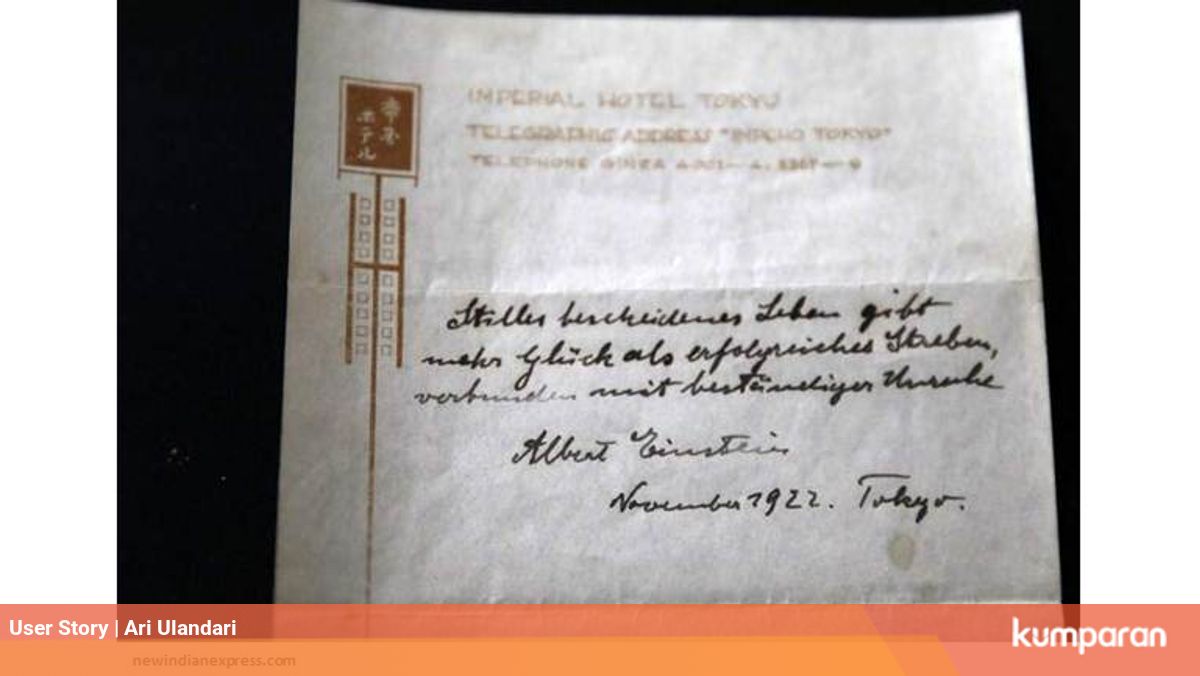 帝国
ホテル
IMPERIAL HOTEL TOKYO
TELEGRAPHIC ADDRESS "IMPEHO TOKYO"
TELEPHONE GINZA
Stilles bescheidenes Leben gibt
mehr Glück als erfolgreiches Streben,
verbunden mit beständiger Unruhe
Albert Einstein
November 1922. Tokyo.
User Story | Ari Ulandari
kumparan
newindianexpress.com